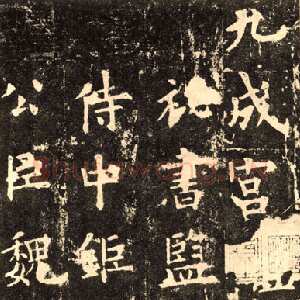 九成宫
祕書監
侍中鉅
公臣魏